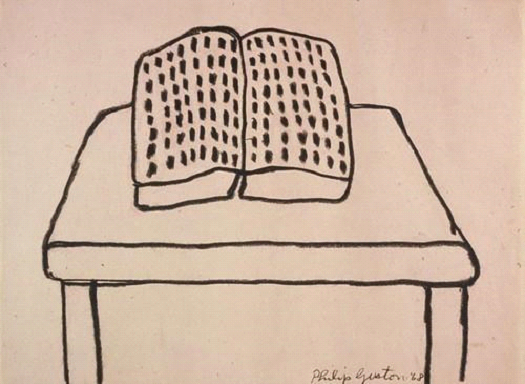 Philip Guston '68